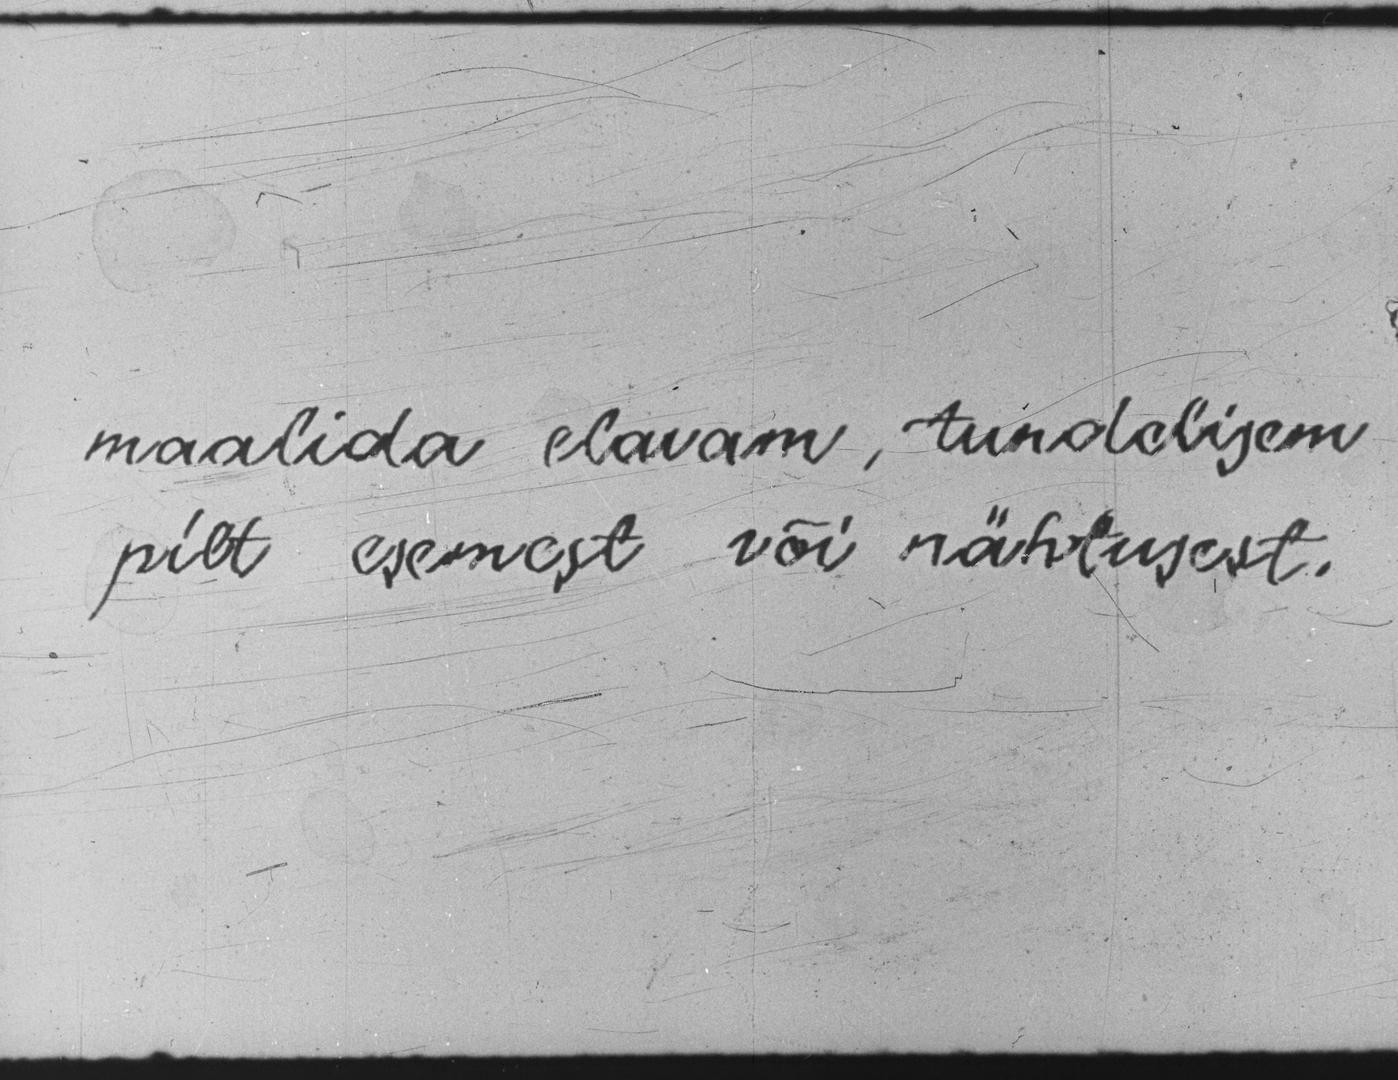 maalida elavam, tundelisem
pilt esemest või nähtusest.